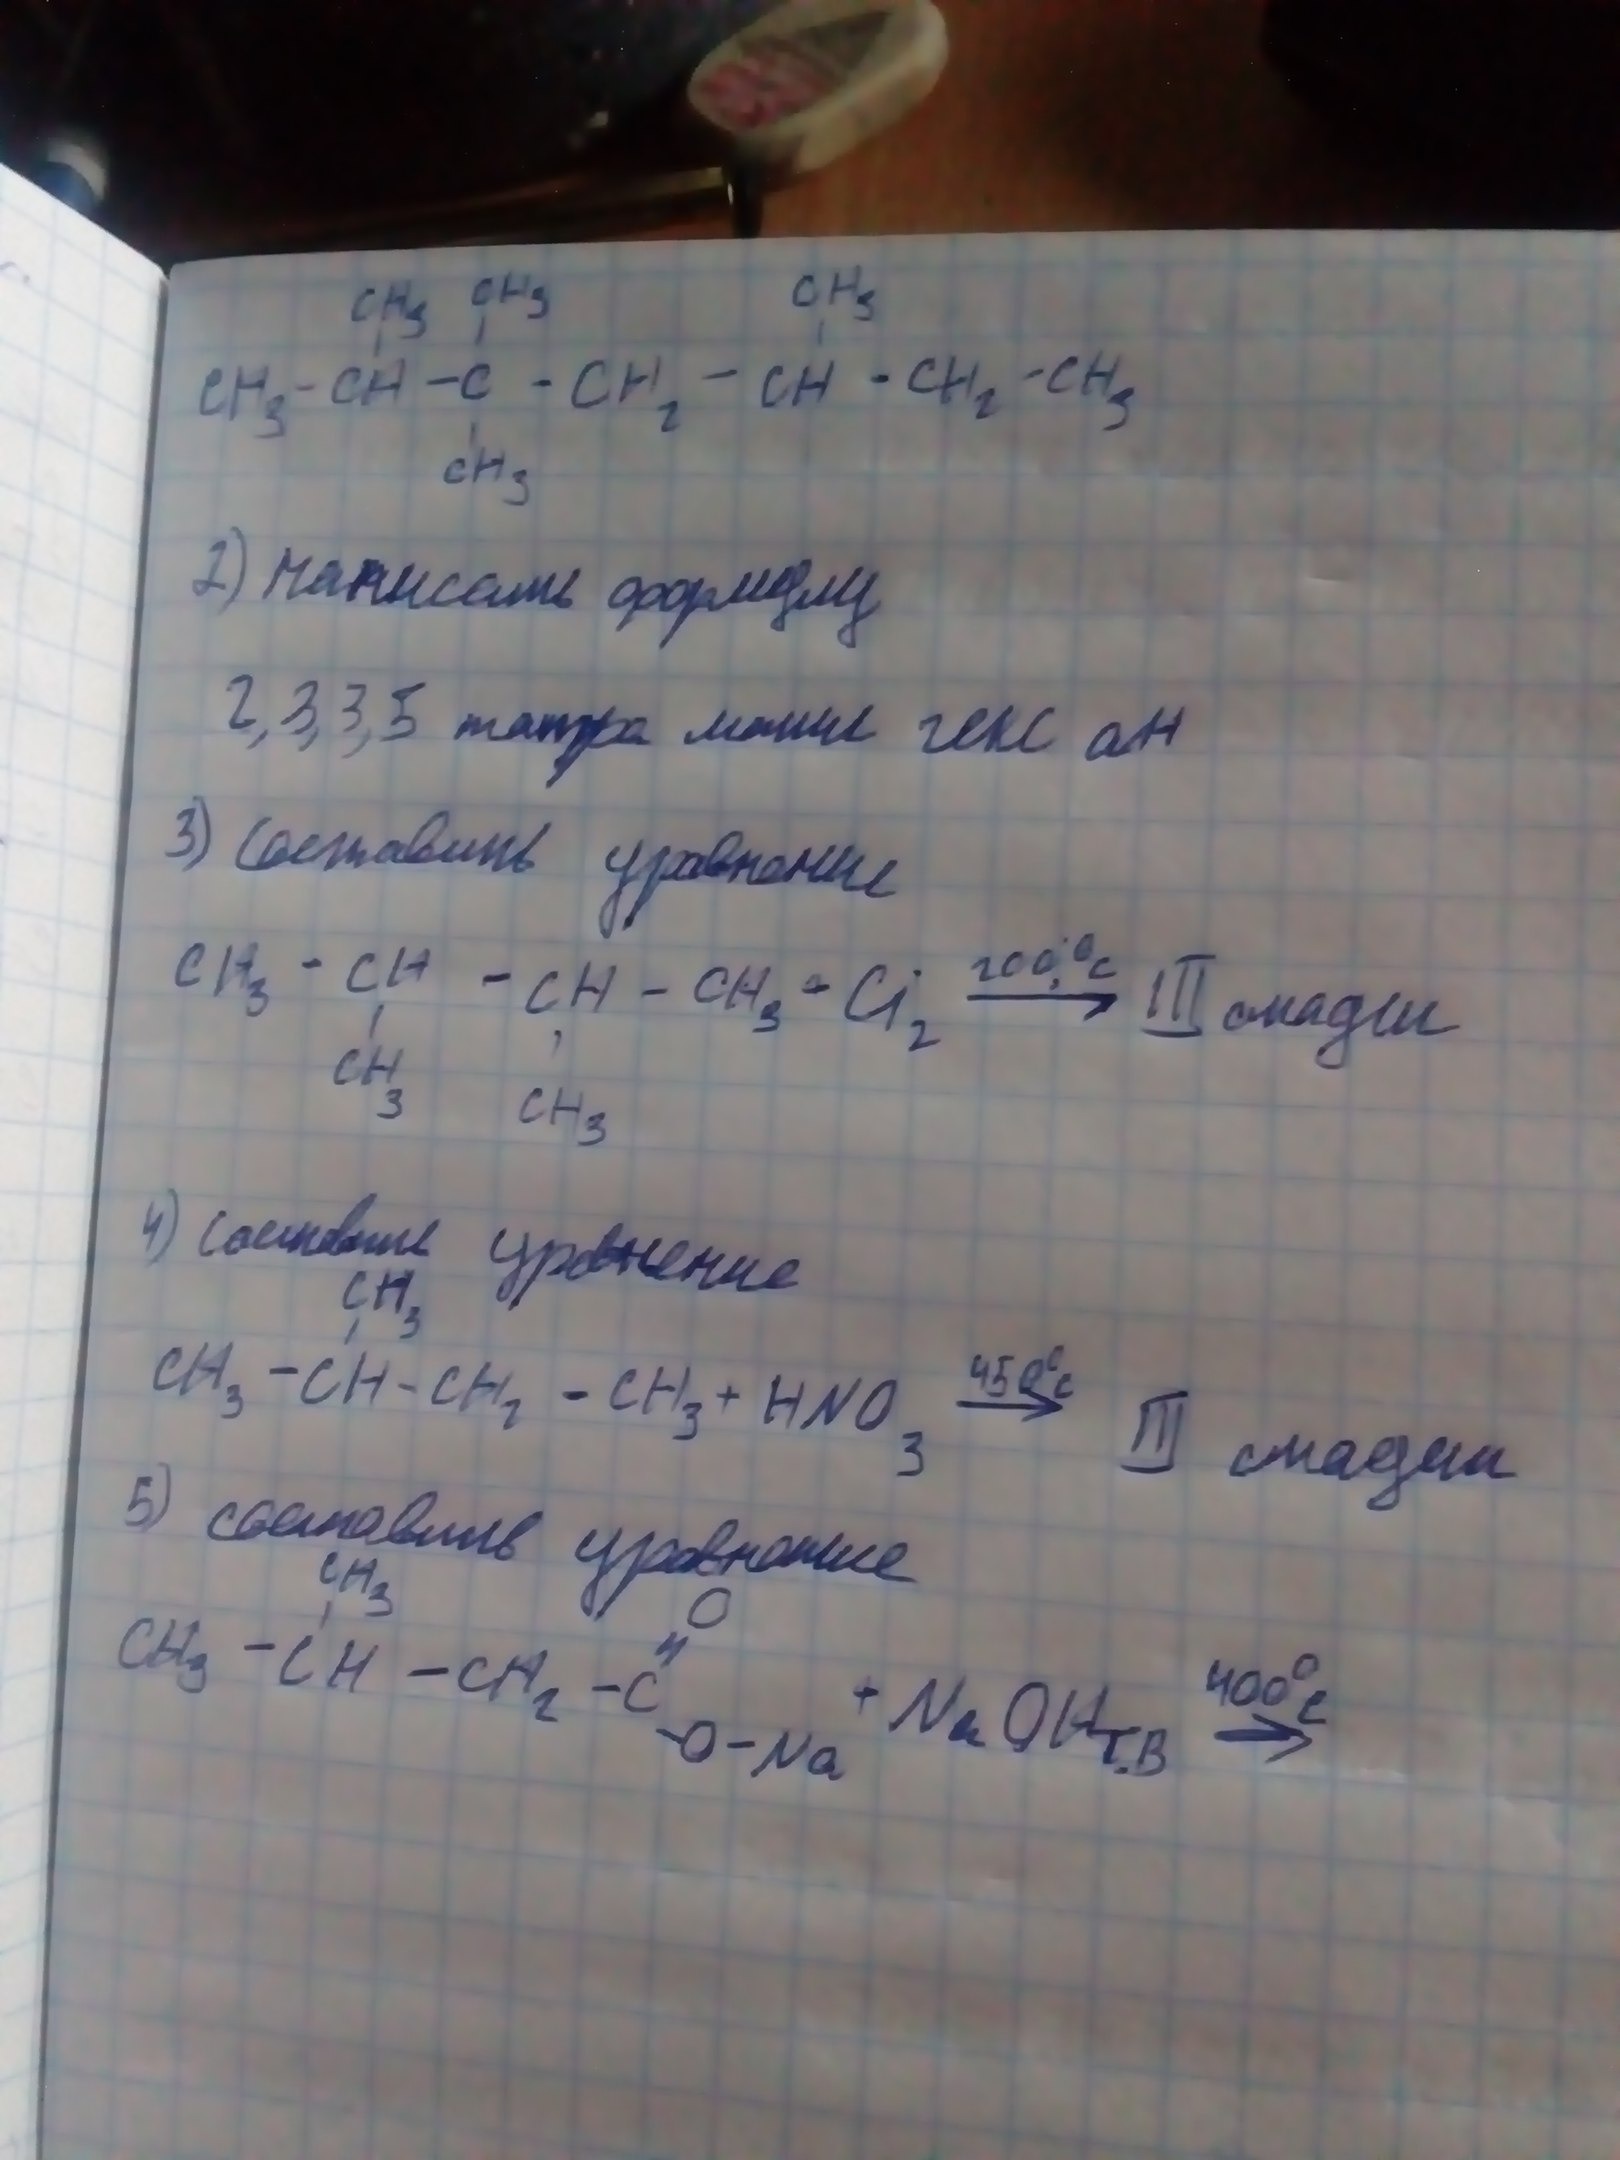 CH3 CH3 CH3
CH3 - CH - C - CH2 - CH - CH2 - CH3
CH3
2) Написать формулу
2,3,3,5 тетра метил гекс ан
3) Составить уравнение
CH3 - CH - CH - CH3 + Cl2 200°C → III стадии
CH3 CH3
4) Составить уравнение
CH3
CH3 - CH - CH2 - CH3 + HNO3 450°C → III стадии
5) Составить уравнение
CH3 O
CH3 - CH - CH2 - C + NaOH т.в 400°C →
- O - Na